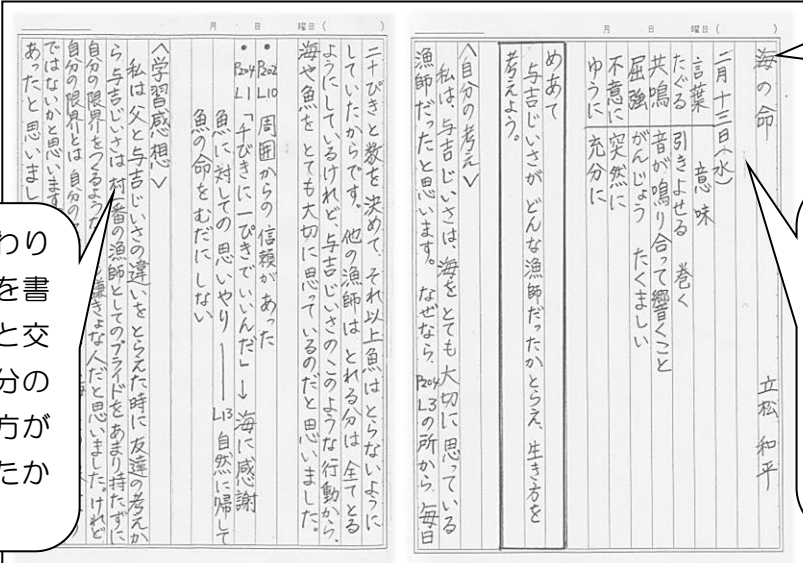 月　日　曜日（　　）
海の命　　立松 和平
二月十三日（水）
言葉　意味
たぐる　引きよせる　巻く
共鳴　音が鳴り合って響くこと
屈強　がんじょう　たくましい
不意に　突然に
ゆうに　充分に
めあて
与吉じいさが どんな漁師だったかとらえ、生き方を
考えよう。
〈自分の考え〉
私は、与吉じいさは、海をとても大切に思っている
漁師だったと思います。なぜなら、P204 L3の所から、毎日
月　日　曜日（　　）
二十ぴきと数を決めて、それ以上魚はとらないように
していたからです。他の漁師は とれる分は 全てとる
ようにしているけれど、与吉じいさのこのような行動から、
海や魚を とても大切に思っているのだと思いました。
• P202 L10 周囲からの信頼があった
• P204 L1 「千びきに一ぴきでいいんだ」→ 海に感謝
魚に対しての思いやり ── L13 自然に帰して
魚の命をむだにしない
〈学習感想〉
私は父と与吉じいさの違いをとらえた時に友達の考えか
ら 与吉じいさは 村一番の漁師としてのプライドをあまり持たずに
自分の限界をつくるよう
きょな人だと思いました。けれど
自分の限界とは 自分の
ではないかと思います
あったと思いまし
わり
を書
と交
分の
方が
たか